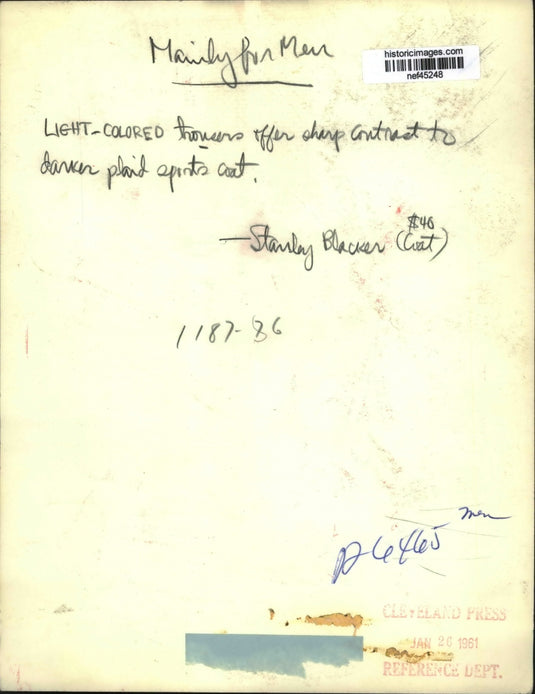 Mainly for Men
historicimages.com
nef45248
LIGHT-COLORED trousers offer sharp contrast to
darker plaid sports coat.
$40
—Stanley Blacker (Coat)
1187-86
men
P6465
CLEVELAND PRESS
JAN 26 1961
REFERENCE DEPT.